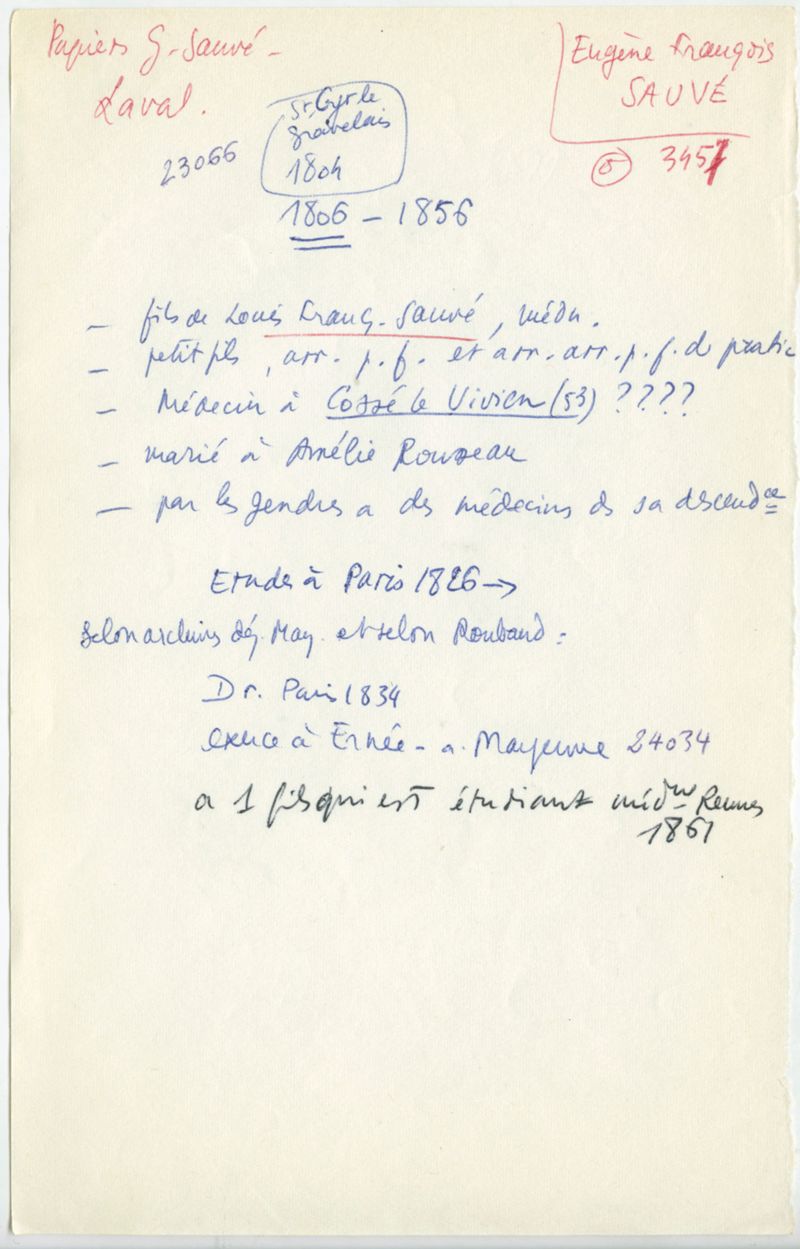 Papiers G. Sauvé -
Laval.
Eugène François
SAUVÉ
5 3451
23066
St Cyr le
Gravelais
1804
1806 - 1856
- fils de Louis Franç. Sauvé, médn.
- petit fils, arr. p. f. et arr. arr. p. f. d pratic
- Médecin à Cossé le Vivien (53) ????
- marié à Amélie Rouzeau
- par les gendres a des médecins ds sa descendce
Etudes à Paris 1826 →
Selon archives dép. May. et selon Roubaud :
Dr. Paris 1834
exerce à Ernée - a. Mayenne 24034
a 1 fils qui est étudiant médne Rennes
1861